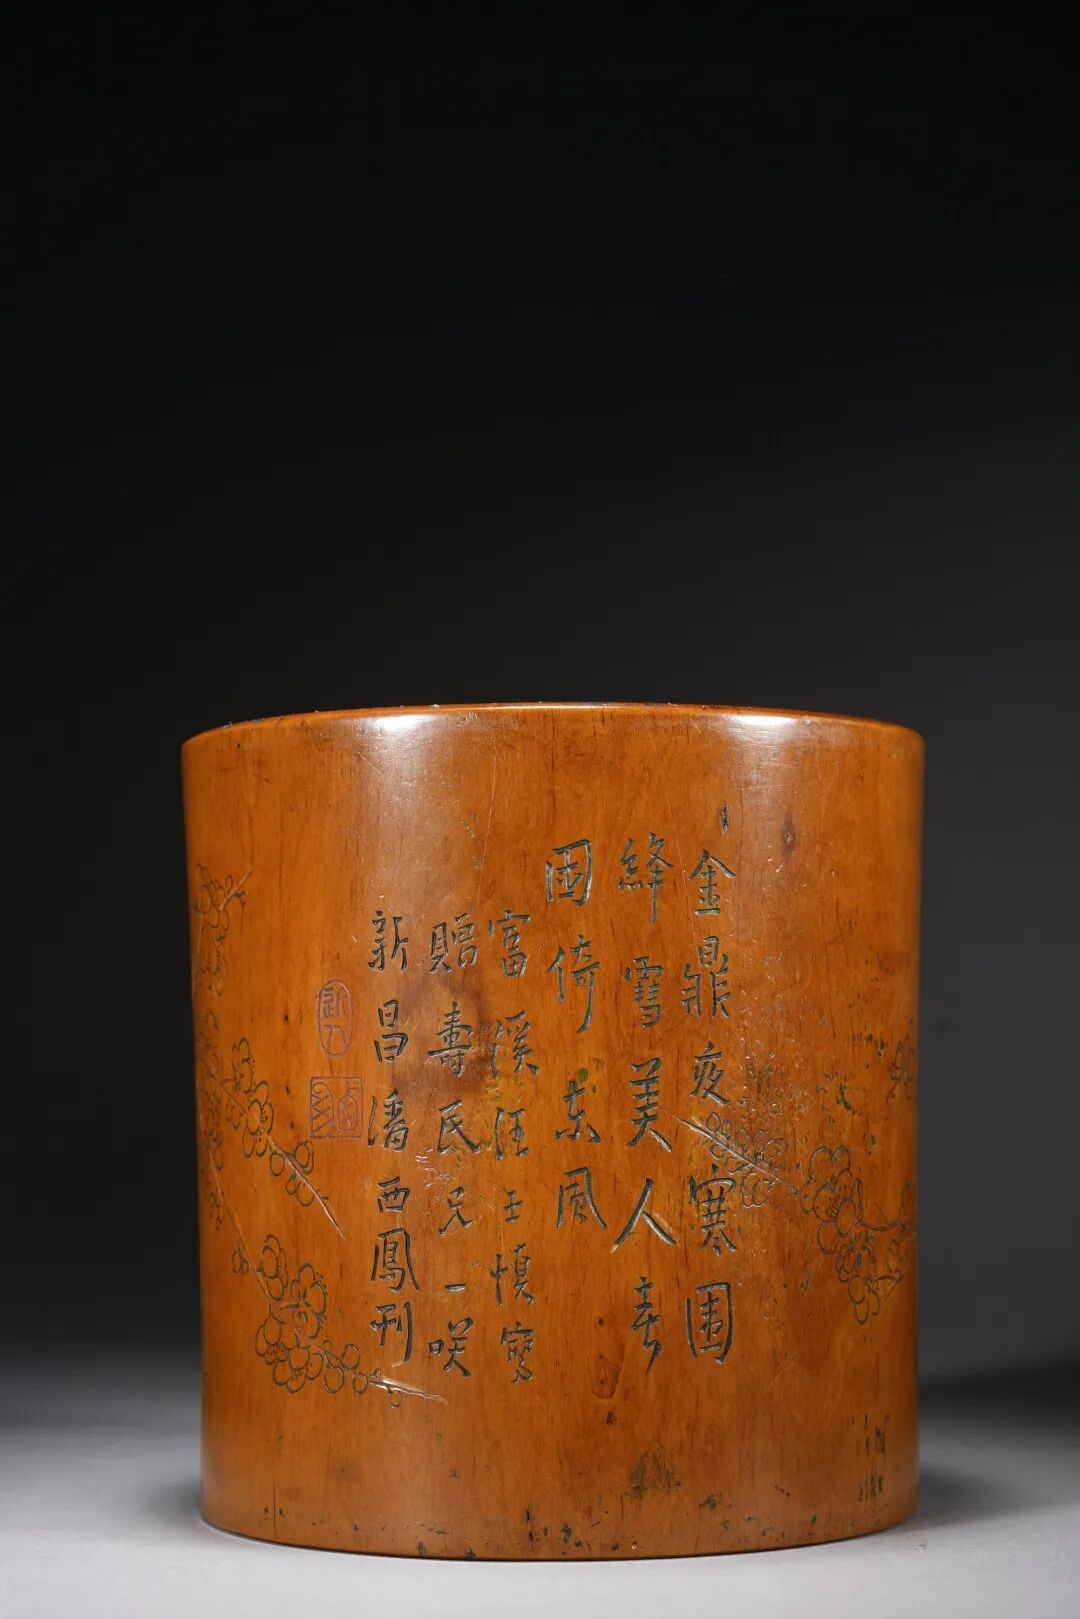 金鼎夜寒圍
絳雪美人春
困倚東風
富溪汪士慎寫
贈壽民兄一咲
新昌潘西鳳刊